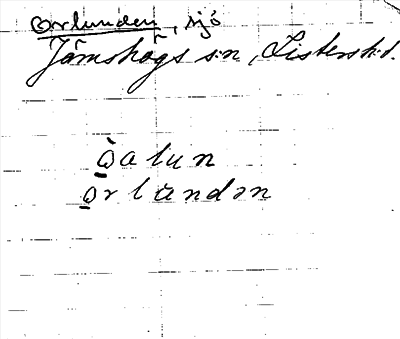 Orlunden, sjö
Jämshögs s:n, Listers h.d.
orlundən